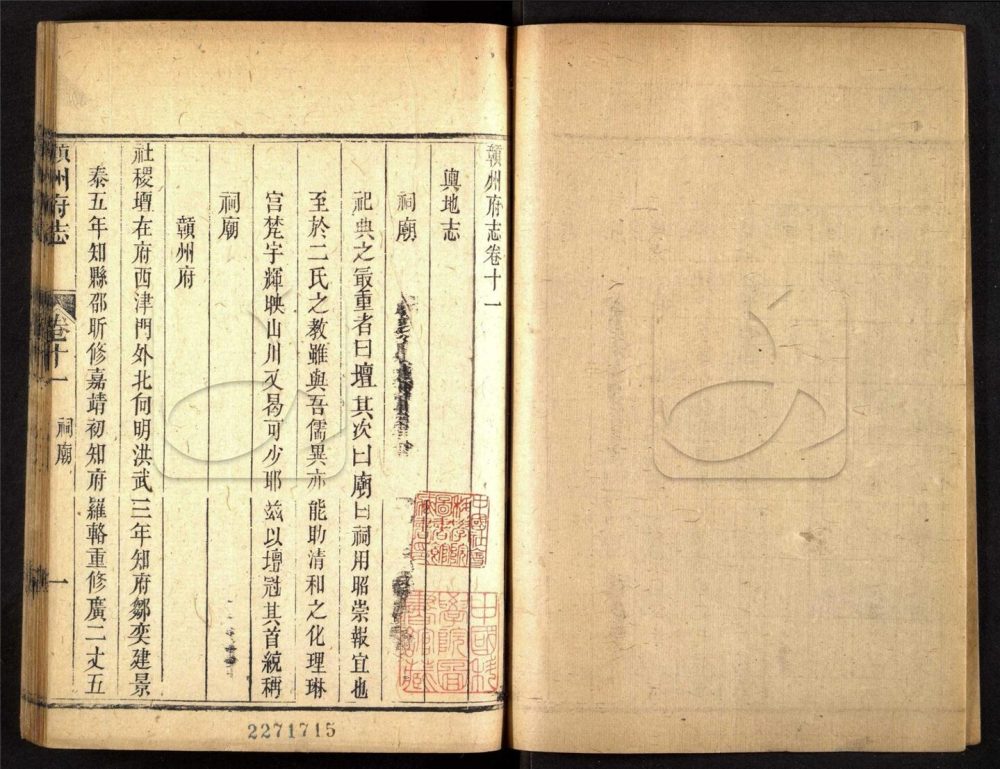 贛州府志卷十一
輿地志
祠廟
祀典之最重者曰壇其次曰廟曰祠用昭崇報宜也
至於二氏之教雖與吾儒異亦能助清和之化理琳
宮梵宇輝映山川又曷可少耶茲以壇冠其首統稱
祠廟
贛州府
社稷壇在府西津門外北向明洪武三年知府鄒奕建景
泰五年知縣邵昕修嘉靖初知府羅輅重修廣二丈五
贛州府志
卷十一
祠廟
一
2271715